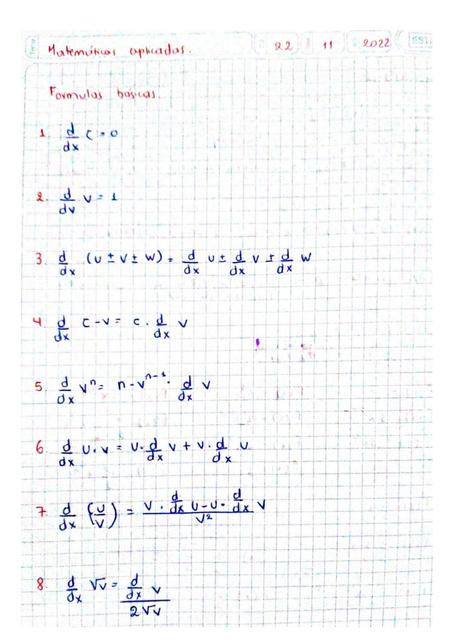 Matemáticas aplicadas. 22 11 2022
Formulas basicas.
1. d/dx c = 0
2. d/dv v = 1
3. d/dx (u ± v ± w) = d/dx u ± d/dx v ± d/dx w
4. d/dx c - v = c · d/dx v
5. d/dx vⁿ = n - vⁿ⁻¹ · d/dx v
6. d/dx u · v = u · d/dx v + v · d/dx u
7. d/dx (u/v) = (v · d/dx u - u · d/dx v)/v²
8. d/dx √v = (d/dx v)/(2√v)